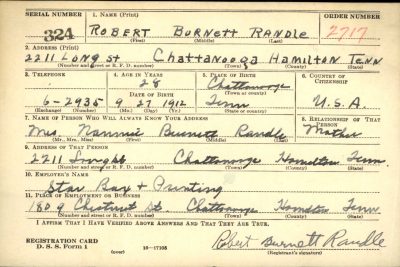 SERIAL NUMBER 1. NAME (Print) ORDER NUMBER
324 ROBERT BURNETT RANDLE 2717
(First) (Middle) (Last)
2. ADDRESS (Print)
2211 LONG St Chattanooga Hamilton Tenn
(Number and street or R. F. D. number) (Town) (County) (State)
3. TELEPHONE 4. AGE IN YEARS 5. PLACE OF BIRTH 6. COUNTRY OF CITIZENSHIP
28 Chattanooga
DATE OF BIRTH (Town or county)
6-2935 9 27 1912 Tenn U.S.A.
(Exchange) (Number) (Mo.) (Day) (Yr.) (State or country)
7. NAME OF PERSON WHO WILL ALWAYS KNOW YOUR ADDRESS 8. RELATIONSHIP OF THAT PERSON
Mrs Nannie Burnett Randle Mother
(Mr., Mrs., Miss) (First) (Middle) (Last)
9. ADDRESS OF THAT PERSON
2211 Chattanooga Hamilton Tenn.
(Number and street or R. F. D. number) (Town) (County) (State)
10. EMPLOYER'S NAME
Star Box & Printing
11. PLACE OF EMPLOYMENT OR BUSINESS
1809 Chestnut St. Chattanooga Hamilton Tenn
(Number and street or R. F. D. number) (Town) (County) (State)
I AFFIRM THAT I HAVE VERIFIED ABOVE ANSWERS AND THAT THEY ARE TRUE.
REGISTRATION CARD
D. S. S. Form 1 (over) 16—17105 Robert Burnett Randle
(Registrant's signature)